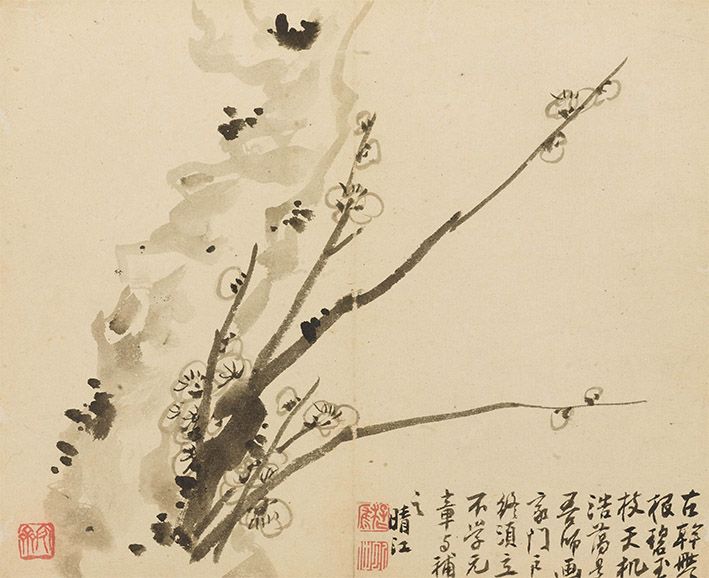 古幹無
根碧玉
枝天机
浩蕩是
吾師画
家門户
終須立
不學元
章与補
之
晴江